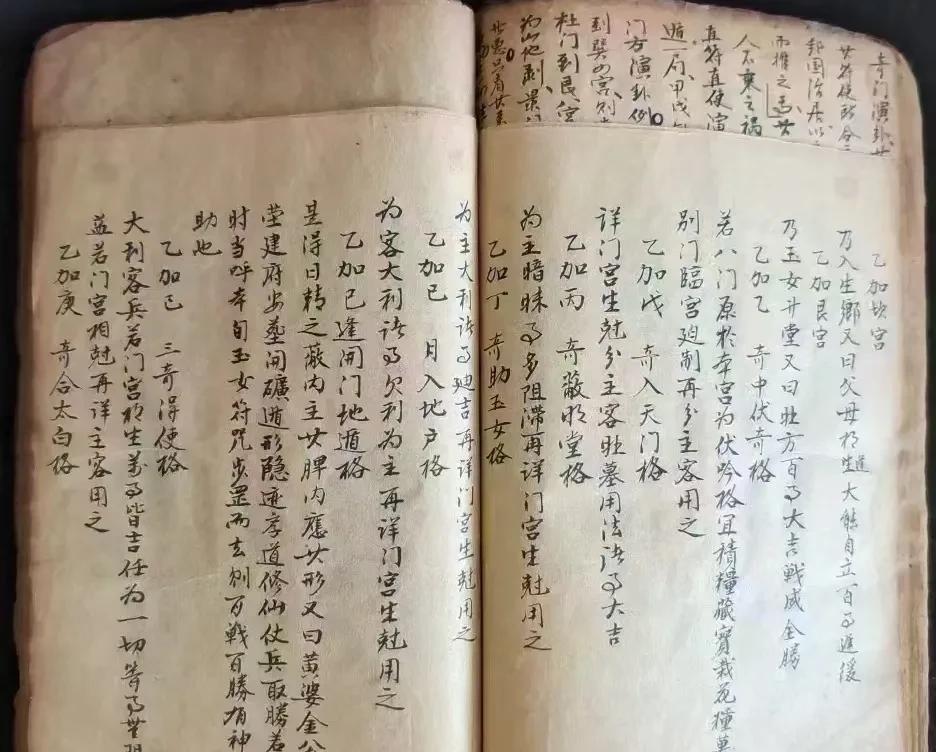 奇门演卦
乙加坎宫
乃入生鄉又曰父母相生道大能自立百事进缓
乙加艮宫
乃玉女升堂又曰壮方百事大吉戦成全勝
乙加乙　奇中伏奇格
若八门原於本宫为伏吟格宜積糧藏寳栽花種
别门臨宫廹制再分主客用之
乙加戊　奇入天门格
詳门宫生尅分主客旺墓用法诸事大吉
乙加丙　奇蔽明堂格
为主暗昧事多阻滞再詳门宫生尅用之
乙加丁　奇助玉女格
直符直使演
遁一局甲戊
门方演卦例
到巽四宫
杜门到艮宫
人不乗之禍
为主大利诸事廹吉再詳门宫生尅用之
乙加己　日入地户格
为客大利诸事欠利为主再详门宫生尅用之
乙加己逢開门地遁格
是得日精之蔽内主其脾内應其形又曰黄婆金公
营建府安墓開礦遁形隐迹孝道修仙仗兵取勝若
时当呼本旬玉女符咒步罡而去则百戦百勝有神
助也
乙加己　三奇得使格
大利客兵若门宫相生萬事皆吉任为一切寄事
盖若门宫相尅再详主客用之
乙加庚　奇合太白格